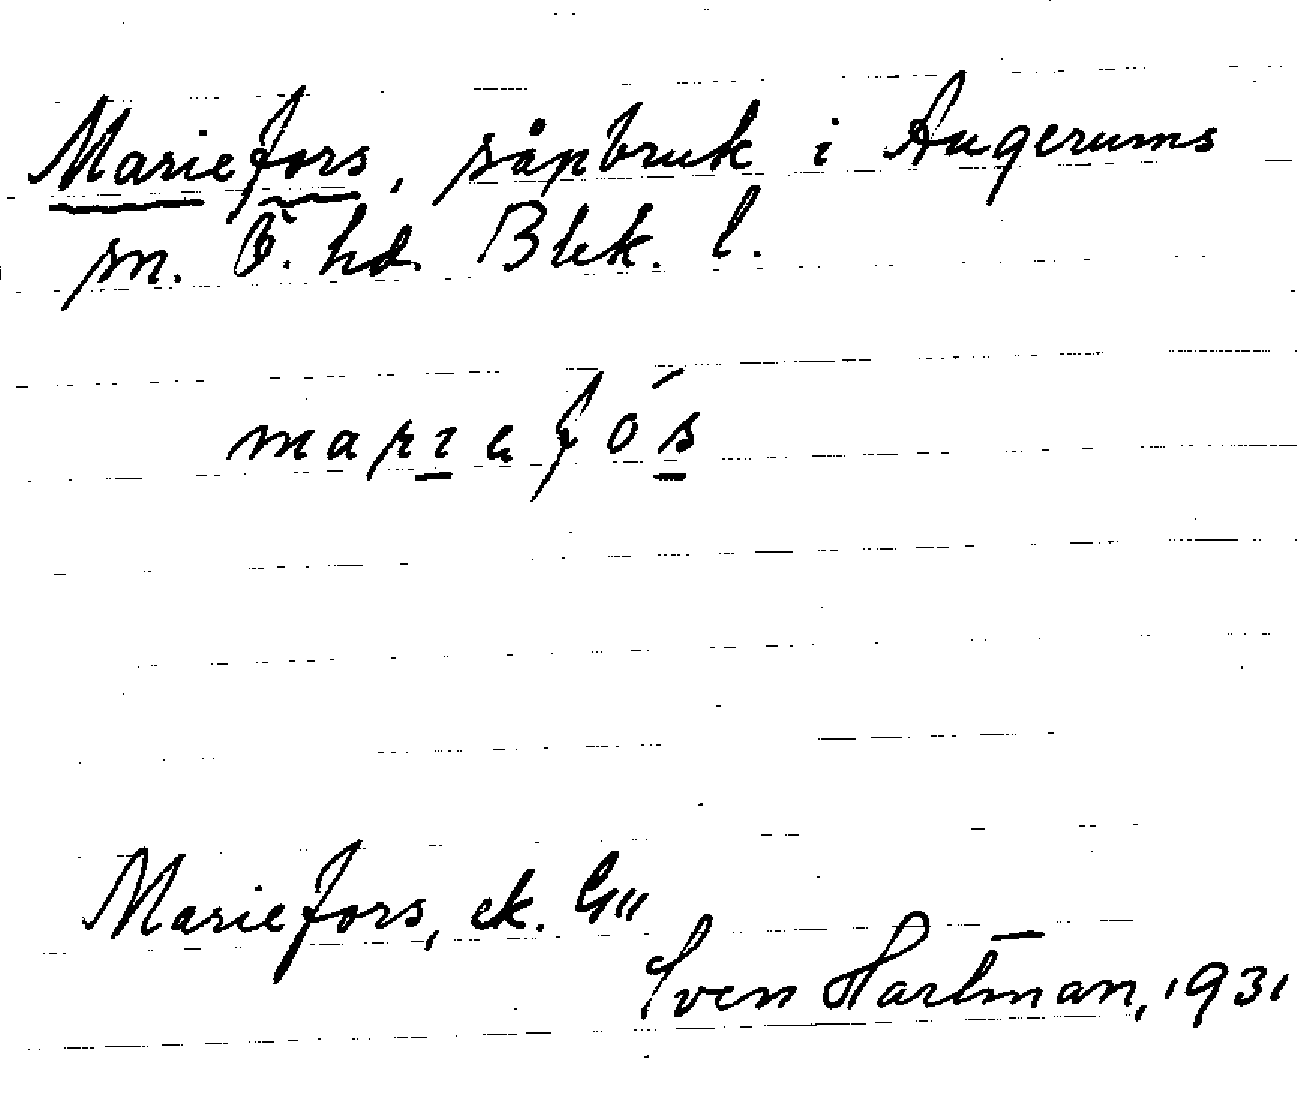 Mariefors, såpbruk i Augerums
sn. Ö. hd. Blek. l.
marıefós
Mariefors, ek.
Sven Hartman, 1931